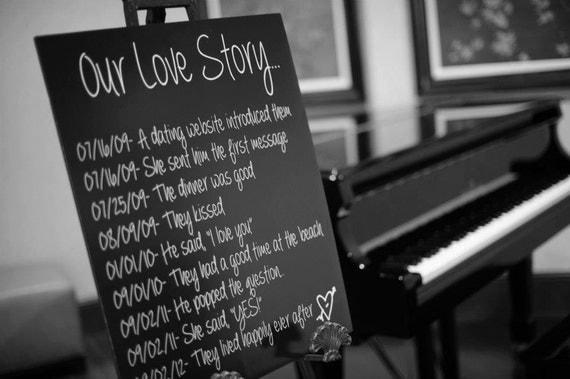 Our Love Story...
07/16/09- A dating website introduced them
07/16/09- She sent him the first message
07/25/09- The dinner was good
08/09/09- They kissed
01/01/10- He said, "I love you"
09/01/10- They had a good time at the beach
09/02/11- He popped the question.
09/02/11- She said, "YES!"
09/02/12- They lived happily ever after